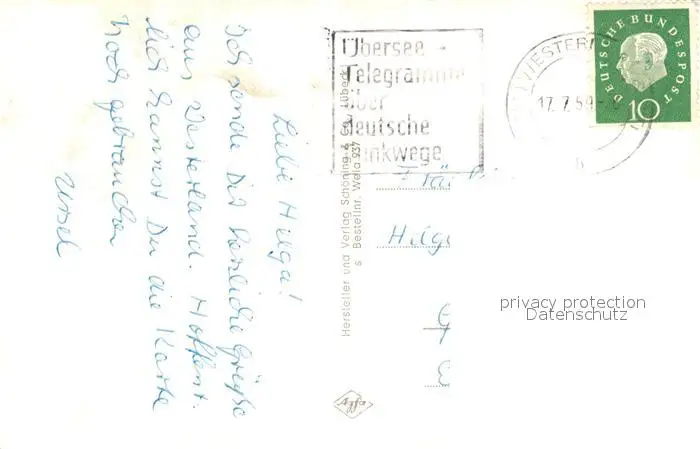 Liebe Hilga!
Ich sende Dir herzliche Grüße
aus Westerland. Hoffent-
lich kannst Du die Karte
noch gebrauchen
Ursel
Hersteller und Verlag Schöning & Co., Lübeck
s Bestellnr. Wela 937
Agfa
Übersee -
Telegramme
über
deutsche
Funkwege
17. 7. 59
DEUTSCHE BUNDESPOST
10
Hilg
privacy protection
Datenschutz